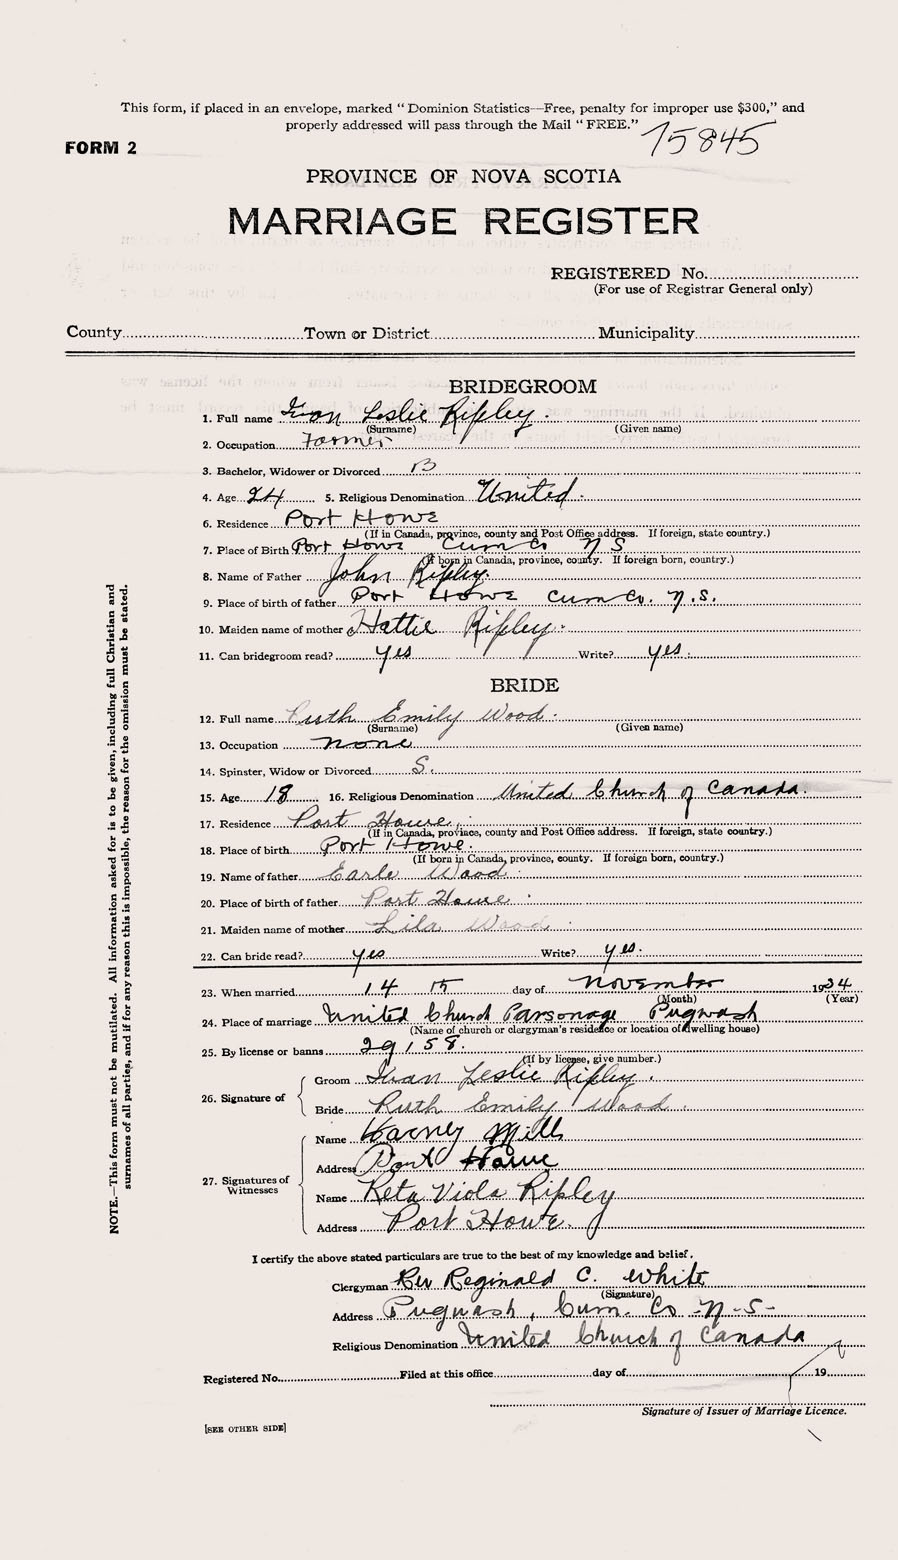 This form, if placed in an envelope, marked “Dominion Statistics—Free, penalty for improper use $300,” and
properly addressed will pass through the Mail “FREE.”
15845
FORM 2
PROVINCE OF NOVA SCOTIA
MARRIAGE REGISTER
REGISTERED No.
(For use of Registrar General only)
County Town or District Municipality
BRIDEGROOM
1. Full name Ivan Leslie Ripley.
(Surname) (Given name)
2. Occupation Farmer
3. Bachelor, Widower or Divorced B
4. Age 24 5. Religious Denomination United.
6. Residence Port Howe
(If in Canada, province, county and Post Office address. If foreign, state country.)
7. Place of Birth Port Howe Cum Co N S
(If born in Canada, province, county. If foreign born, country.)
8. Name of Father John Ripley.
9. Place of birth of father Port Howe Cum Co. N.S.
10. Maiden name of mother Hattie Ripley.
11. Can bridegroom read? yes Write? yes.
BRIDE
12. Full name Ruth Emily Wood.
(Surname) (Given name)
13. Occupation none
14. Spinster, Widow or Divorced S.
15. Age 18 16. Religious Denomination United Church of Canada.
17. Residence Port Howe.
(If in Canada, province, county and Post Office address. If foreign, state country.)
18. Place of birth Port Howe.
(If born in Canada, province, county. If foreign born, country.)
19. Name of father Earle Wood.
20. Place of birth of father Port Howe.
21. Maiden name of mother Lila Wood.
22. Can bride read? yes Write? yes.
23. When married 14 th day of November 1934
(Month) (Year)
24. Place of marriage United Church Parsonage Pugwash
(Name of church or clergyman's residence or location of dwelling house)
25. By license or banns 29158.
(If by license, give number.)
26. Signature of
Groom Ivan Leslie Ripley.
Bride Ruth Emily Wood.
27. Signatures of Witnesses
Name Harney Mills
Address Port Howe
Name Reta Viola Ripley
Address Port Howe.
I certify the above stated particulars are true to the best of my knowledge and belief.
Clergyman Rev Reginald C. White
(Signature)
Address Pugwash, Cum. Co N-S-
Religious Denomination United Church of Canada
Registered No. Filed at this office day of 19
Signature of Issuer of Marriage Licence.
[SEE OTHER SIDE]
NOTE.—This form must not be mutilated. All information asked for is to be given, including full Christian and
surnames of all parties, and if for any reason this is impossible, the reason for the omission must be stated.